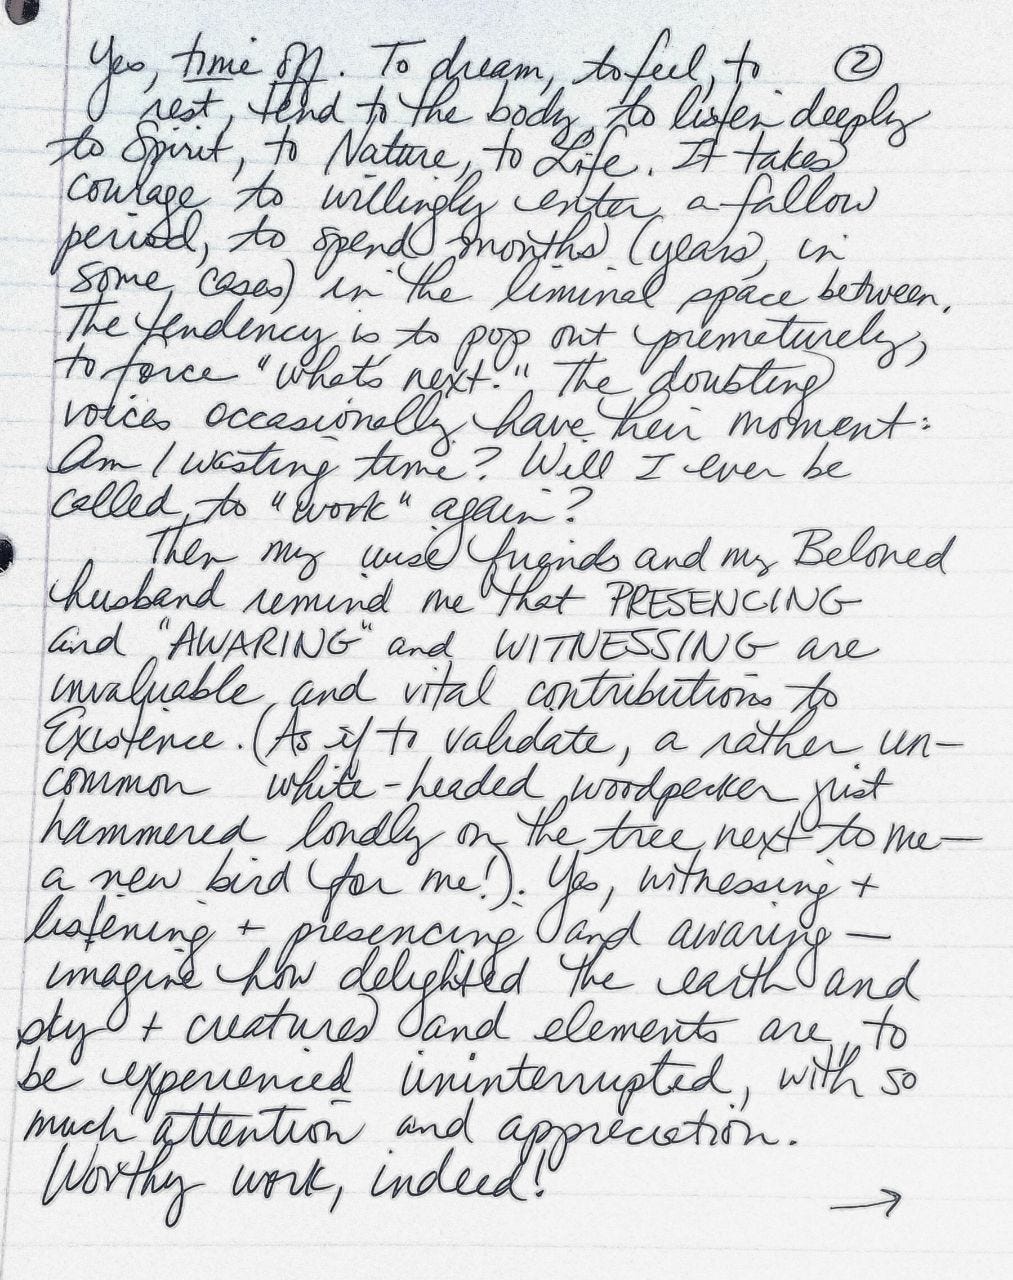 Yes, time off. To dream, to feel, to ②
rest, tend to the body, to listen deeply
to Spirit, to Nature, to Life. It takes
courage to willingly enter a fallow
period, to spend months (years, in
some cases) in the liminal space between.
The tendency is to pop out prematurely,
to force "what's next." The doubting
voices occasionally have their moment:
Am I wasting time? Will I ever be
called to "work" again?
Then my wise friends and my Beloved
husband remind me that PRESENCING
and "AWARING" and WITNESSING are
invaluable and vital contributions to
Existence. (As if to validate, a rather un-
common white-headed woodpecker just
hammered loudly on the tree next to me—
a new bird (for me!). Yes, witnessing +
listening + presencing and awaring —
imagine how delighted the earth and
sky + creatures and elements are to
be experienced uninterrupted, with so
much attention and appreciation.
Worthy work, indeed!
→